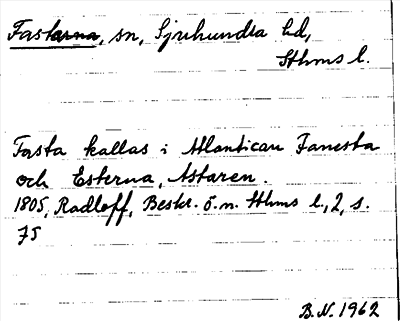 Fastarna, sn, Sjuhundra hd,
Sthms l.
Fasta kallas i Atlantican Fanesta
och Esterna, Astaren.
1805, Radloff, Beskr. ö. n. Sthms l., 2, s.
75
B.N. 1962